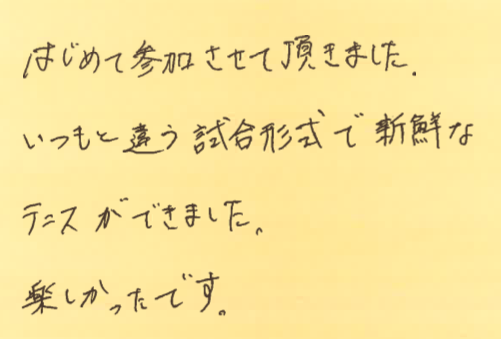 はじめて参加させて頂きました.
いつもと違う試合形式で新鮮な
テニスができました。
楽しかったです。